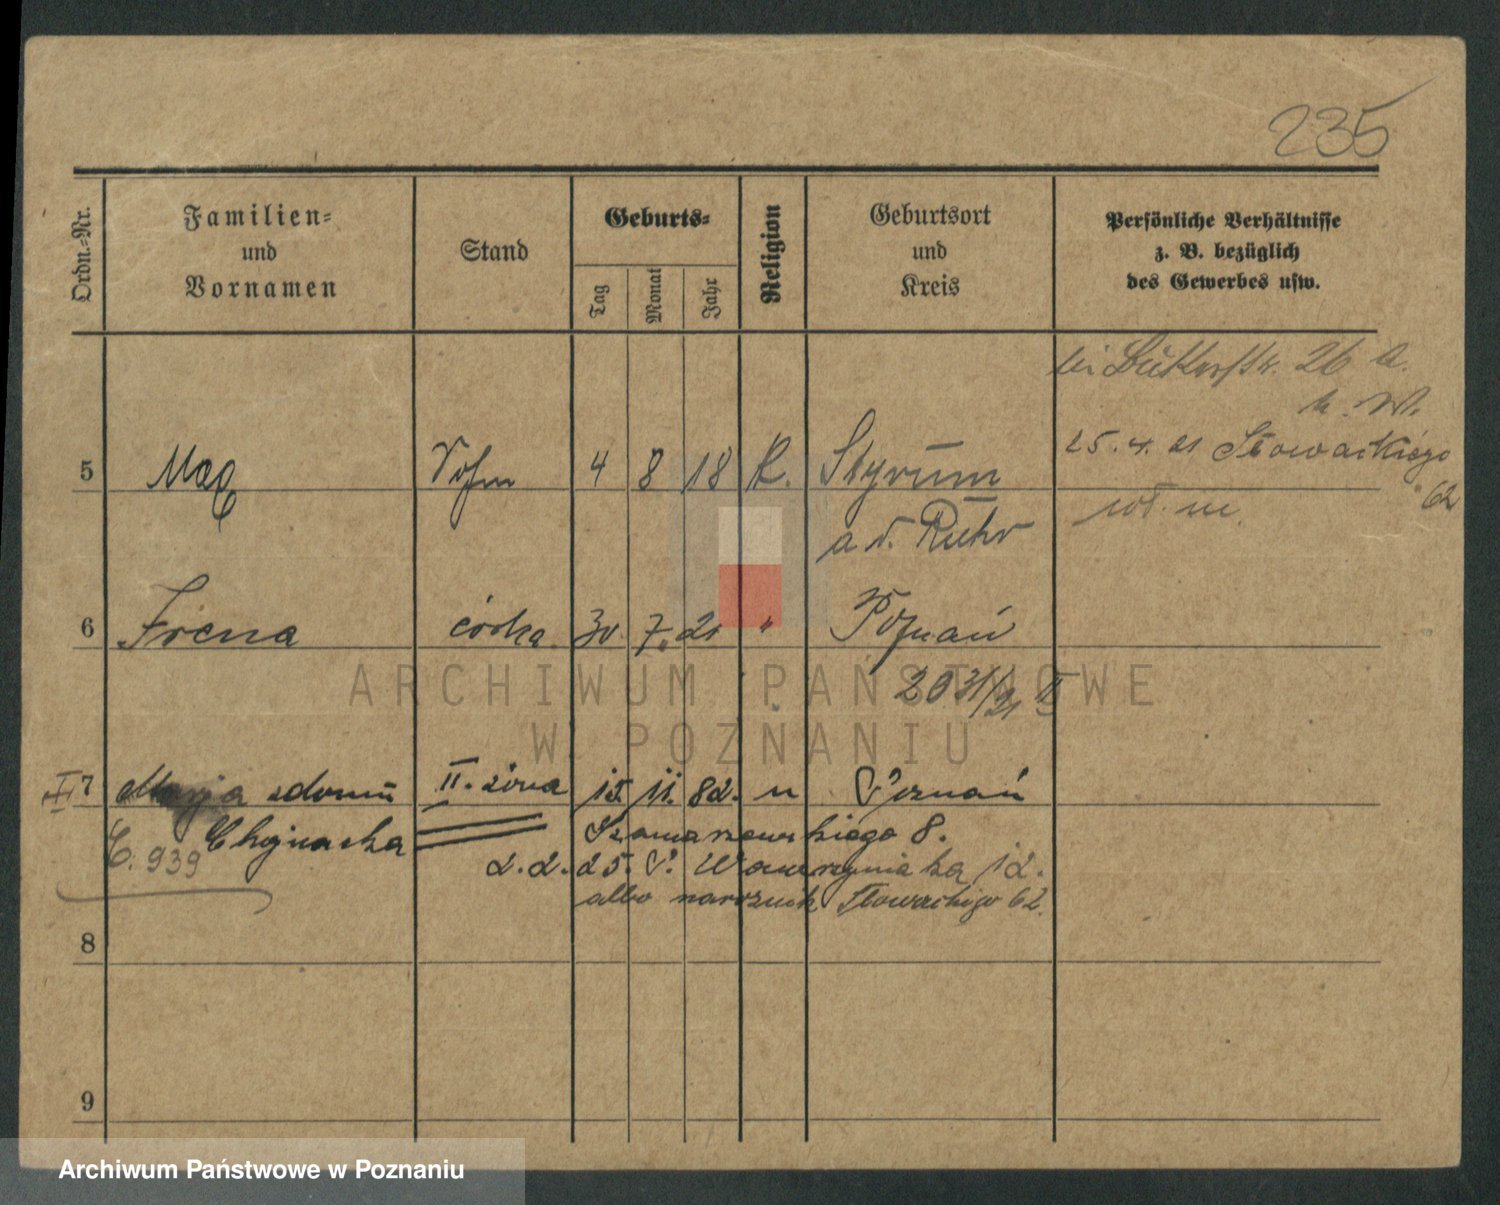 235
Ordn.-Nr.
Familien-
und
Vornamen
Stand
Geburts-
Tag
Monat
Jahr
Religion
Geburtsort
und
Kreis
Persönliche Verhältnisse
z. B. bezüglich
des Gewerbes usw.
26 a.
h. W.
5 Max Sohn 4 8 18 K. Styrum
a. d. Ruhr
25. 4. 21 Słowackiego
62
wł. m.
6 Irena córka 30. 7. 21 " Poznań
2031/21 II
7 Marja zdomu II. żona 15. 11. 82. " Poznań
Chojnacka Szamarzewskiego 8.
E. 939
2. 2. 25. P. Wawrzyniaka 12.
albo narożnik Słowackiego 62.
8
9
ARCHIWUM PAŃSTWOWE
W POZNANIU
Archiwum Państwowe w Poznaniu